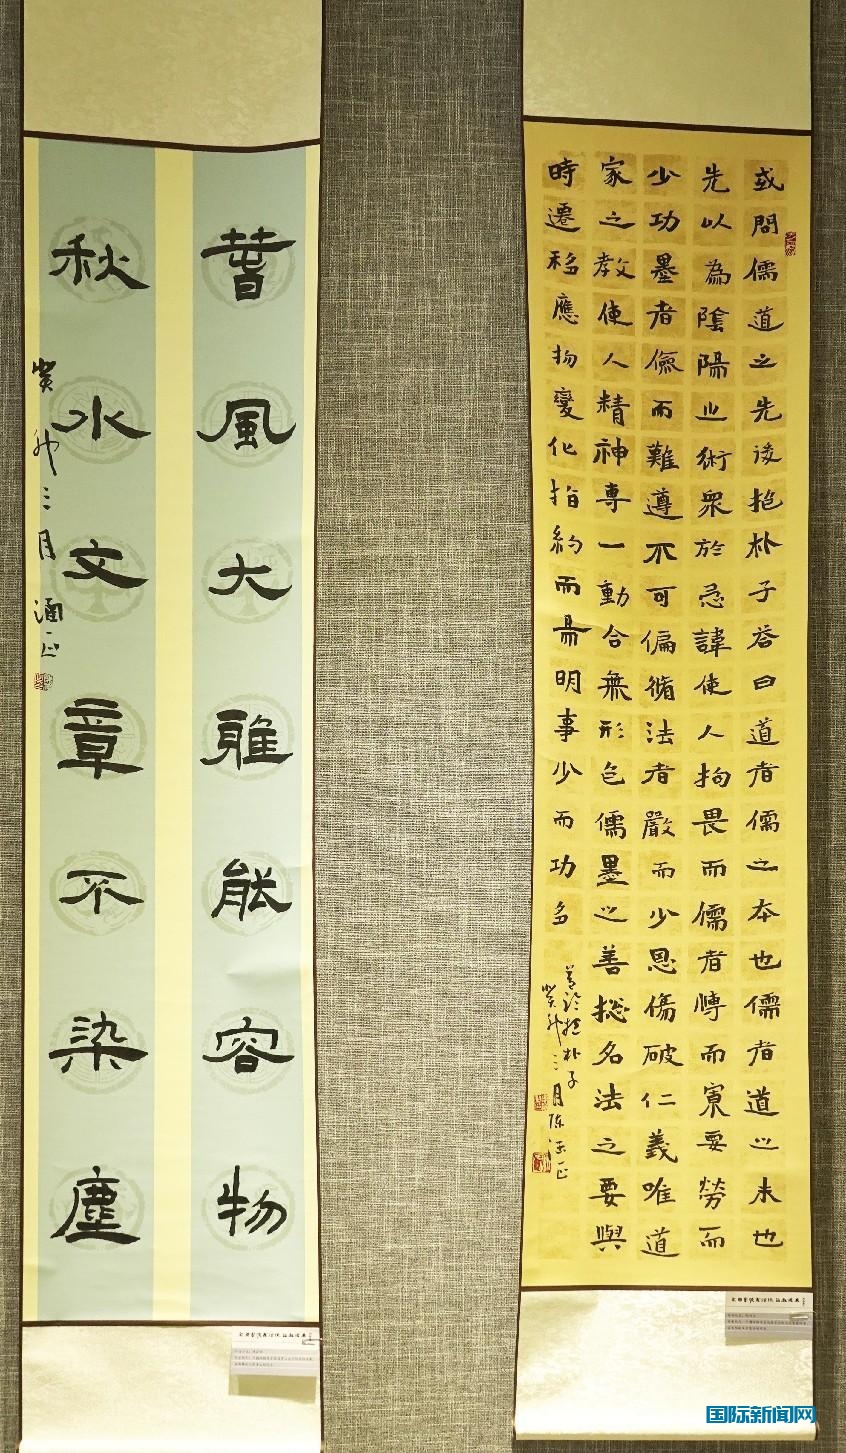 或問儒道之先後抱朴子答曰道者儒之本也儒者道之末也
先以為陰陽之術衆於忌諱使人拘畏而儒者博而寡要勞而
少功墨者儉而難遵不可偏循法者嚴而少恩傷破仁義唯道
家之教使人精神專一動合無形包儒墨之善總名法之要與
時遷移應物變化指約而易明事少而功多
抱朴子
癸卯三月陈
春風大雅能容物
秋水文章不染塵
癸卯三月
国际新闻网